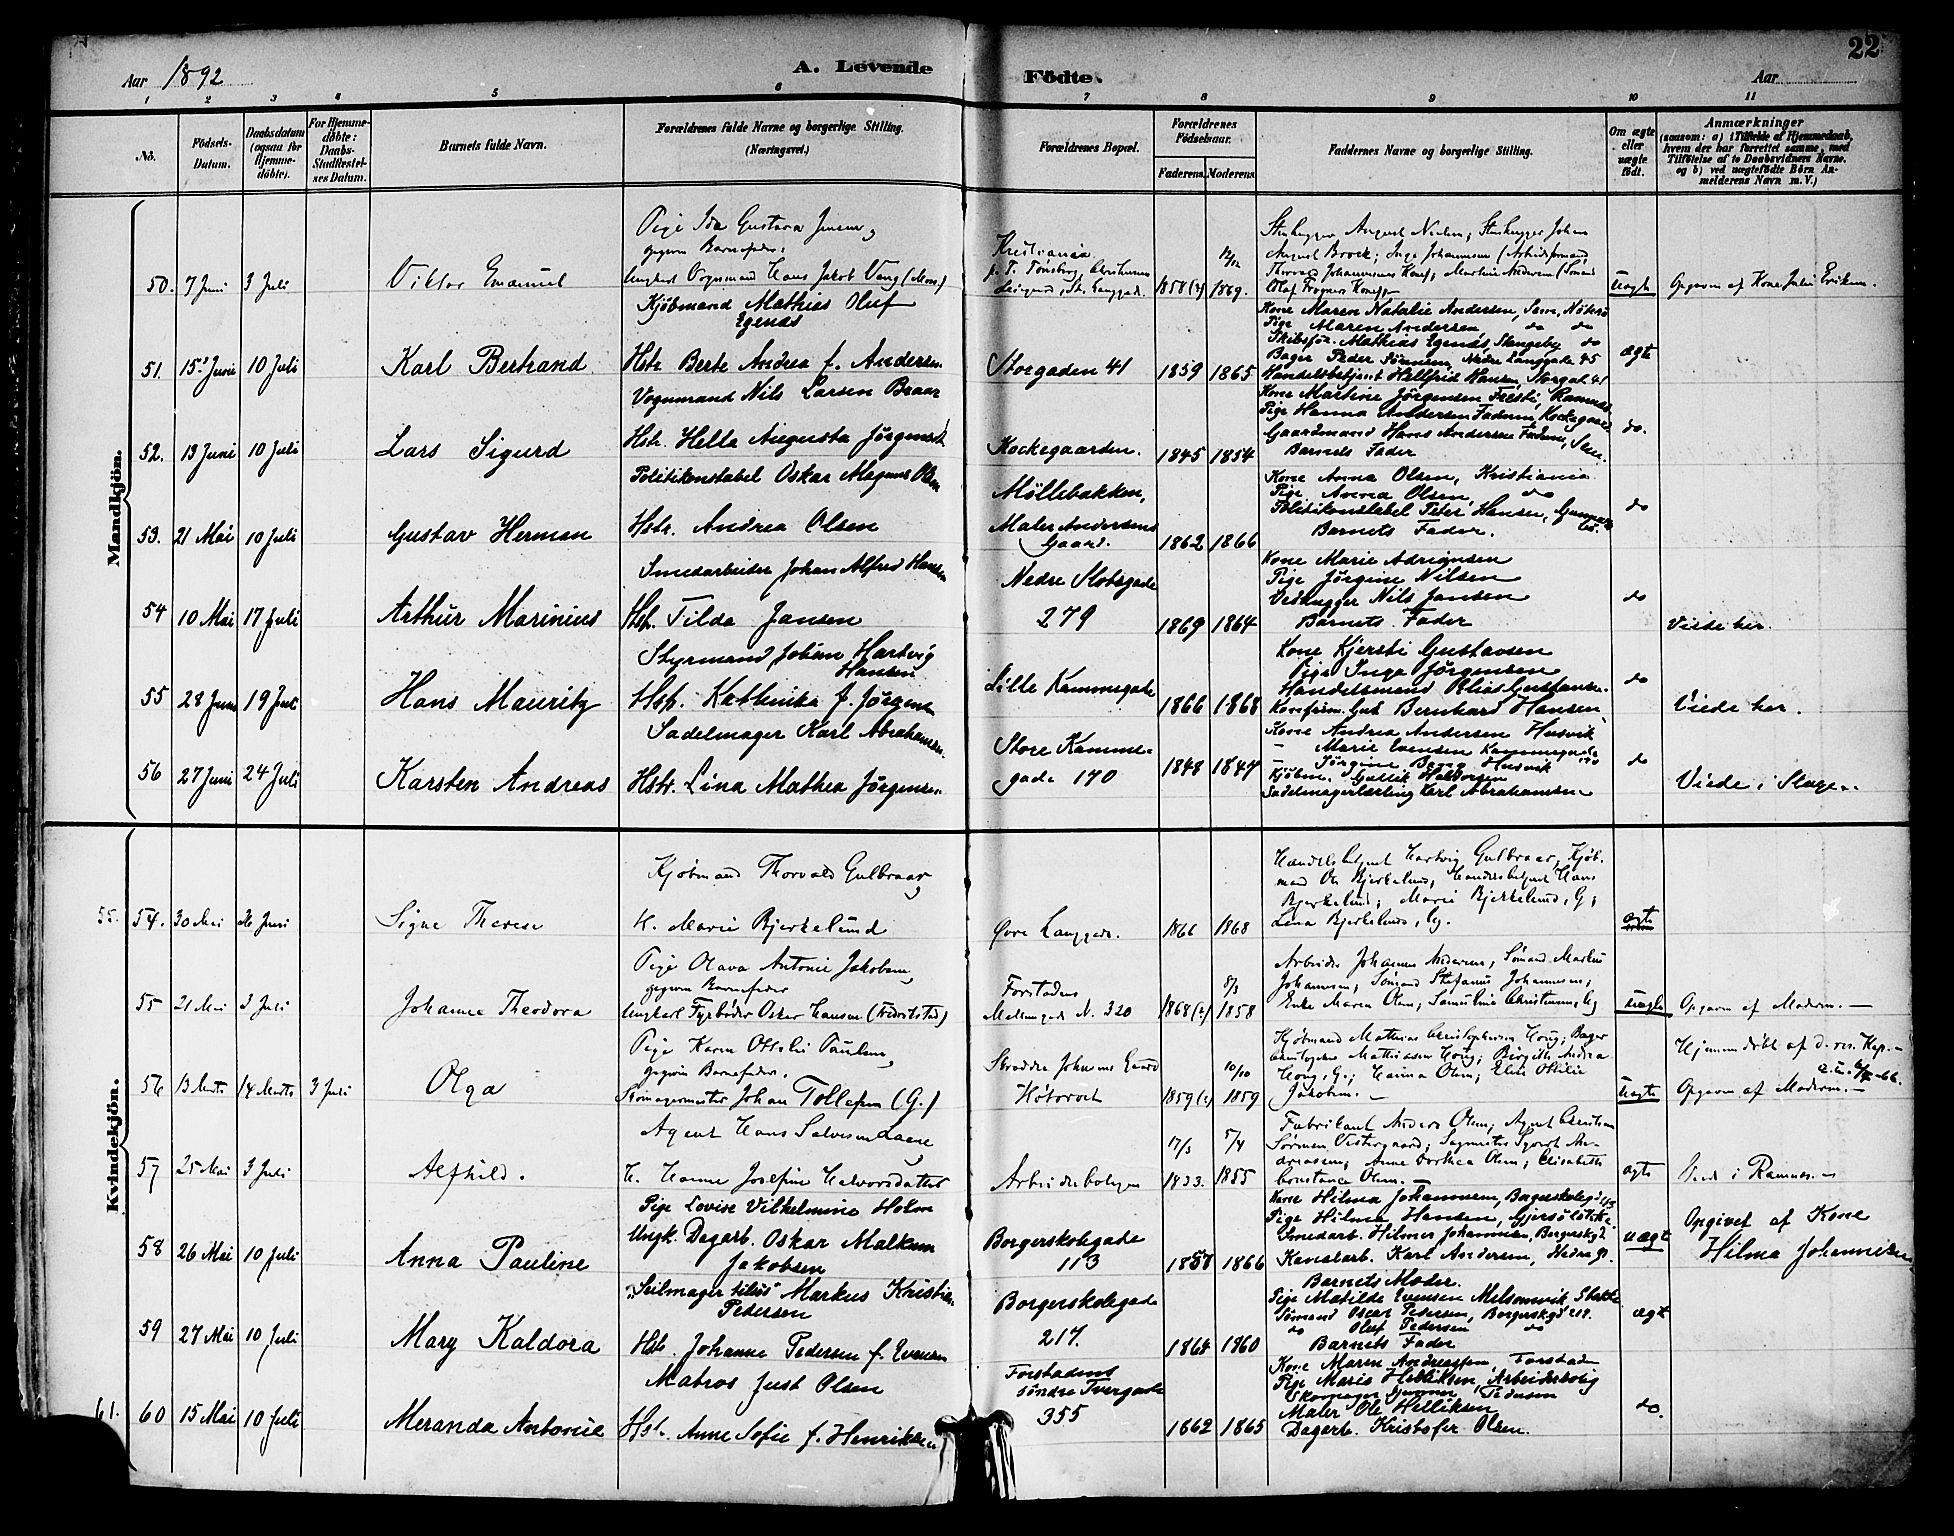 22
Aar 1892
A. Levende
Födte.
Aar
1 2 3 4 5 6 7 8 9 10 11
No.
Födsels-Datum.
Daabsdatum (ogsaa for Hjemme-döbte).
For Hjemme-döbte: Daabs-Stadfæstel-ses Datum.
Barnets fulde Navn.
Forældrenes fulde Navne og borgerlige Stilling.
(Næringsvei.)
Forældrenes Bopæl.
Forældrenes Födselsaar.
Faderens. Moderens.
Faddernes Navne og borgerlige Stilling.
Om ægte eller uægte födt.
Anmærkninger
(saasom: a) i Tilfælde af Hjemmedaab,
hvem der har forrettet samme, med
Tilföielse af to Daabsvidners Navne.
og b) ved uægtefödte Börn An-
melderens Navn m. V.)
Mandkjön.
50. 7 Juni 3 Juli
Viktor Emanuel
Pige Ida Gustava Jensen,
opgiven Barnefader:
Ungkarl Vognmand Hans Jakob Vang (Moss)
Kristiania
1858(?) 12/12 1869.
Stenhugger August Nielsen; Stenhugger Johan
August Brock; Inga Johannesen (Arbeidsformand
Thorvald Johannesens Kone);
Olaf Frogners Kone).
uægte
Opgaven af Kone Julie Eriksen.
51. 15 Juni 10 Juli
Karl Bertrand
Kjöbmand Mathias Oluf
Egenæs
Hstr. Berte Andrea f. Andersen
Storgaden 41
1859 1865
Kone Maren Natalie Andersen, Sem, Nøterö
Pige Maren Andersen do do
Skibsför. Mathias Egenæs, Slengeby do
Bager Peder Sönnem, Nedre Langgade 45
Handelsbetjent Hellfrid Hansen, Storgad. 41
ægte
52. 13 Juni 10 Juli
Lars Sigurd
Vognmand Nils Larsen Braar
Hstr. Helle Augusta Jörgensen
Kockegaarden.
1845 1854
Kone Martine Jörgensen Feesti, Ramnæs
Pige Hanna Andersen Fadum, Kockegaard
Gaardmand Hans Andersen Fadum, Sem.
Barnets Fader
do.
53. 21 Mai 10 Juli
Gustav Herman
Politikonstabel Oskar Magnus Olsen
Hstr. Andrea Olsen
Möllebakken,
Maler Andersens
Gaard.
1862 1866
Kone Anna Olsen, Kristiania
Pige Anna Olsen, do
Politikonstabel Peter Hansen,
Barnets Fader.
do
54 10 Mai 17 Juli
Arthur Marinius
Smedarbeider Johan Alfred Hansen
Hstr. Tilda Jansen
Nedre Slotsgade
279
1869 1864
Kone Marie Adriansen
Pige Jörgine Nilsen
Vedhugger Nils Jansen
Barnets Fader
do
Viede her.
55 28 Juni 19 Juli
Hans Mauritz
Styrmand Johan Hartvig
Hansen
Hstr. Kathinka f. Jörgensen
Lille Kammegade
1866 1868
Kone Kjersti Gustavsen
Pige Inga Jörgensen
Handelsmand Elias Gustavsen.
Bernhard Hansen
do
Viede her.
56 27 Juni 24 Juli
Karsten Andreas
Sadelmager Karl Abrahamsen
Hstr. Lina Mathea Jörgensen.
Store Kamme-
gade 170
1848 1847
Kone Andrea Andersen Husvik
- Marie Evensen Kammegade
- Jörgine Berg Husvik
Kjöbm. Gullik Halvorsen
Sadelmagerlærling Karl Abrahamsen
do
Viede i Slagen.
Kvindekjön.
55. 54. 30 Mai 26 Juni
Signe Therese
Kjöbmand Thorvald Gulbraar,
H. Marie Bjerkelund
Övre Langgade.
1866 1868
Handelsbetjent Hartvig Gulbraar, Kjöb-
mand Ole Bjerkelund; Handelsbetjent Hans
Bjerkelund; Marie Bjerkelund, G;
Lina Bjerkelund, Ug.
ægte
55 21 Mai 3 Juli
Johanne Theodora
Pige Olava Antonie Jakobsen,
opgiven Barnefader
Ungkarl Fyrböder Oskar Hansen (Fredrikstad)
Forstadens
Mellemgade N. 320
1868(?) 8/3 1858
Arbeider Johannes Andersen; Sömand Markus
Johannesen; Sömand Stefanus Johannesen;
Enke Maren Olsen;
uægte
Opgaven af Moderen.-
56 13 Marts 14 Marts 3 Juli
Olga
Pige Karen Ottilie Paulsen,
opgiven Barnefader.
Skomagermester Johan Tollefsen (G.)
Skrædder Johnsens Gaard
Höitorvet
1859(?) 10/10 1859
Kjöbmand Mathias Christophersen Houg; Bager
Christopher Mathiassen Houg; Birgithe Andrea
Houg, G.; Hanna Olsen; Elise Ottilie
Jakobsen.-
uægte
Hjemmedöbt af
Opgaven af Moderen.-
57 25 Mai 3 Juli
Alfhild.
Agent Hans Salvesen Laane
H. Hanne Josefine Halvorsdatter
Arbeiderboligen
17/3 1833. 5/4 1855
Fabrikant Anders Olsen; Agent Christian
Sörensen Vestergaard; Sagmester Sivert An-
dreasen; Anne Dorthea Olsen; Elisabeth
Constance Olsen.-
ægte
Viede i Ramnes.-
58 26 Mai 10 Juli
Anna Pauline
Pige Lovise Vilhelmine Holm
Ungk. Dagarb. Oskar Malkum
Jakobsen
Borgerskolegade
113
1857 1866
Kone Hilma Johannesen, Borgerskoleg. 113
Pige Hilma Hansen,
Smedarb. Hilmer Johannesen, Borgerskg.
Kanalarb. Karl Andersen, Nedreg.
Barnets Moder.
uægt
Opgivet af Kone
Hilma Johannesen
59 27 Mai 10 Juli
Mary Kaldora
"Seilmager Markus Kristian
Pedersen
Hstr. Johanne Pedersen f. Evensen
Borgerskolegade
217.
1864 1860
Pige Matilde Evensen Melsomvik Stokke
Sömand Oscar Pedersen, Borgerskg. 217.
do Oluf Pedersen do
Barnets Fader
ægt
61. 60 15 Mai 10 Juli
Meranda Antonie
Matros Just Olsen
Hstr. Anne Sofie f. Henriksen
Forstadens
söndre Tvergade
355
1862 1865
Kone Maren Andreassen, Forstaden
Pige Marie Helliksen, Arbeiderbolig
Skomager Gunner Pedersen
Maler Ole Helliksen
Dagarb. Kristofer Olsen.
do.